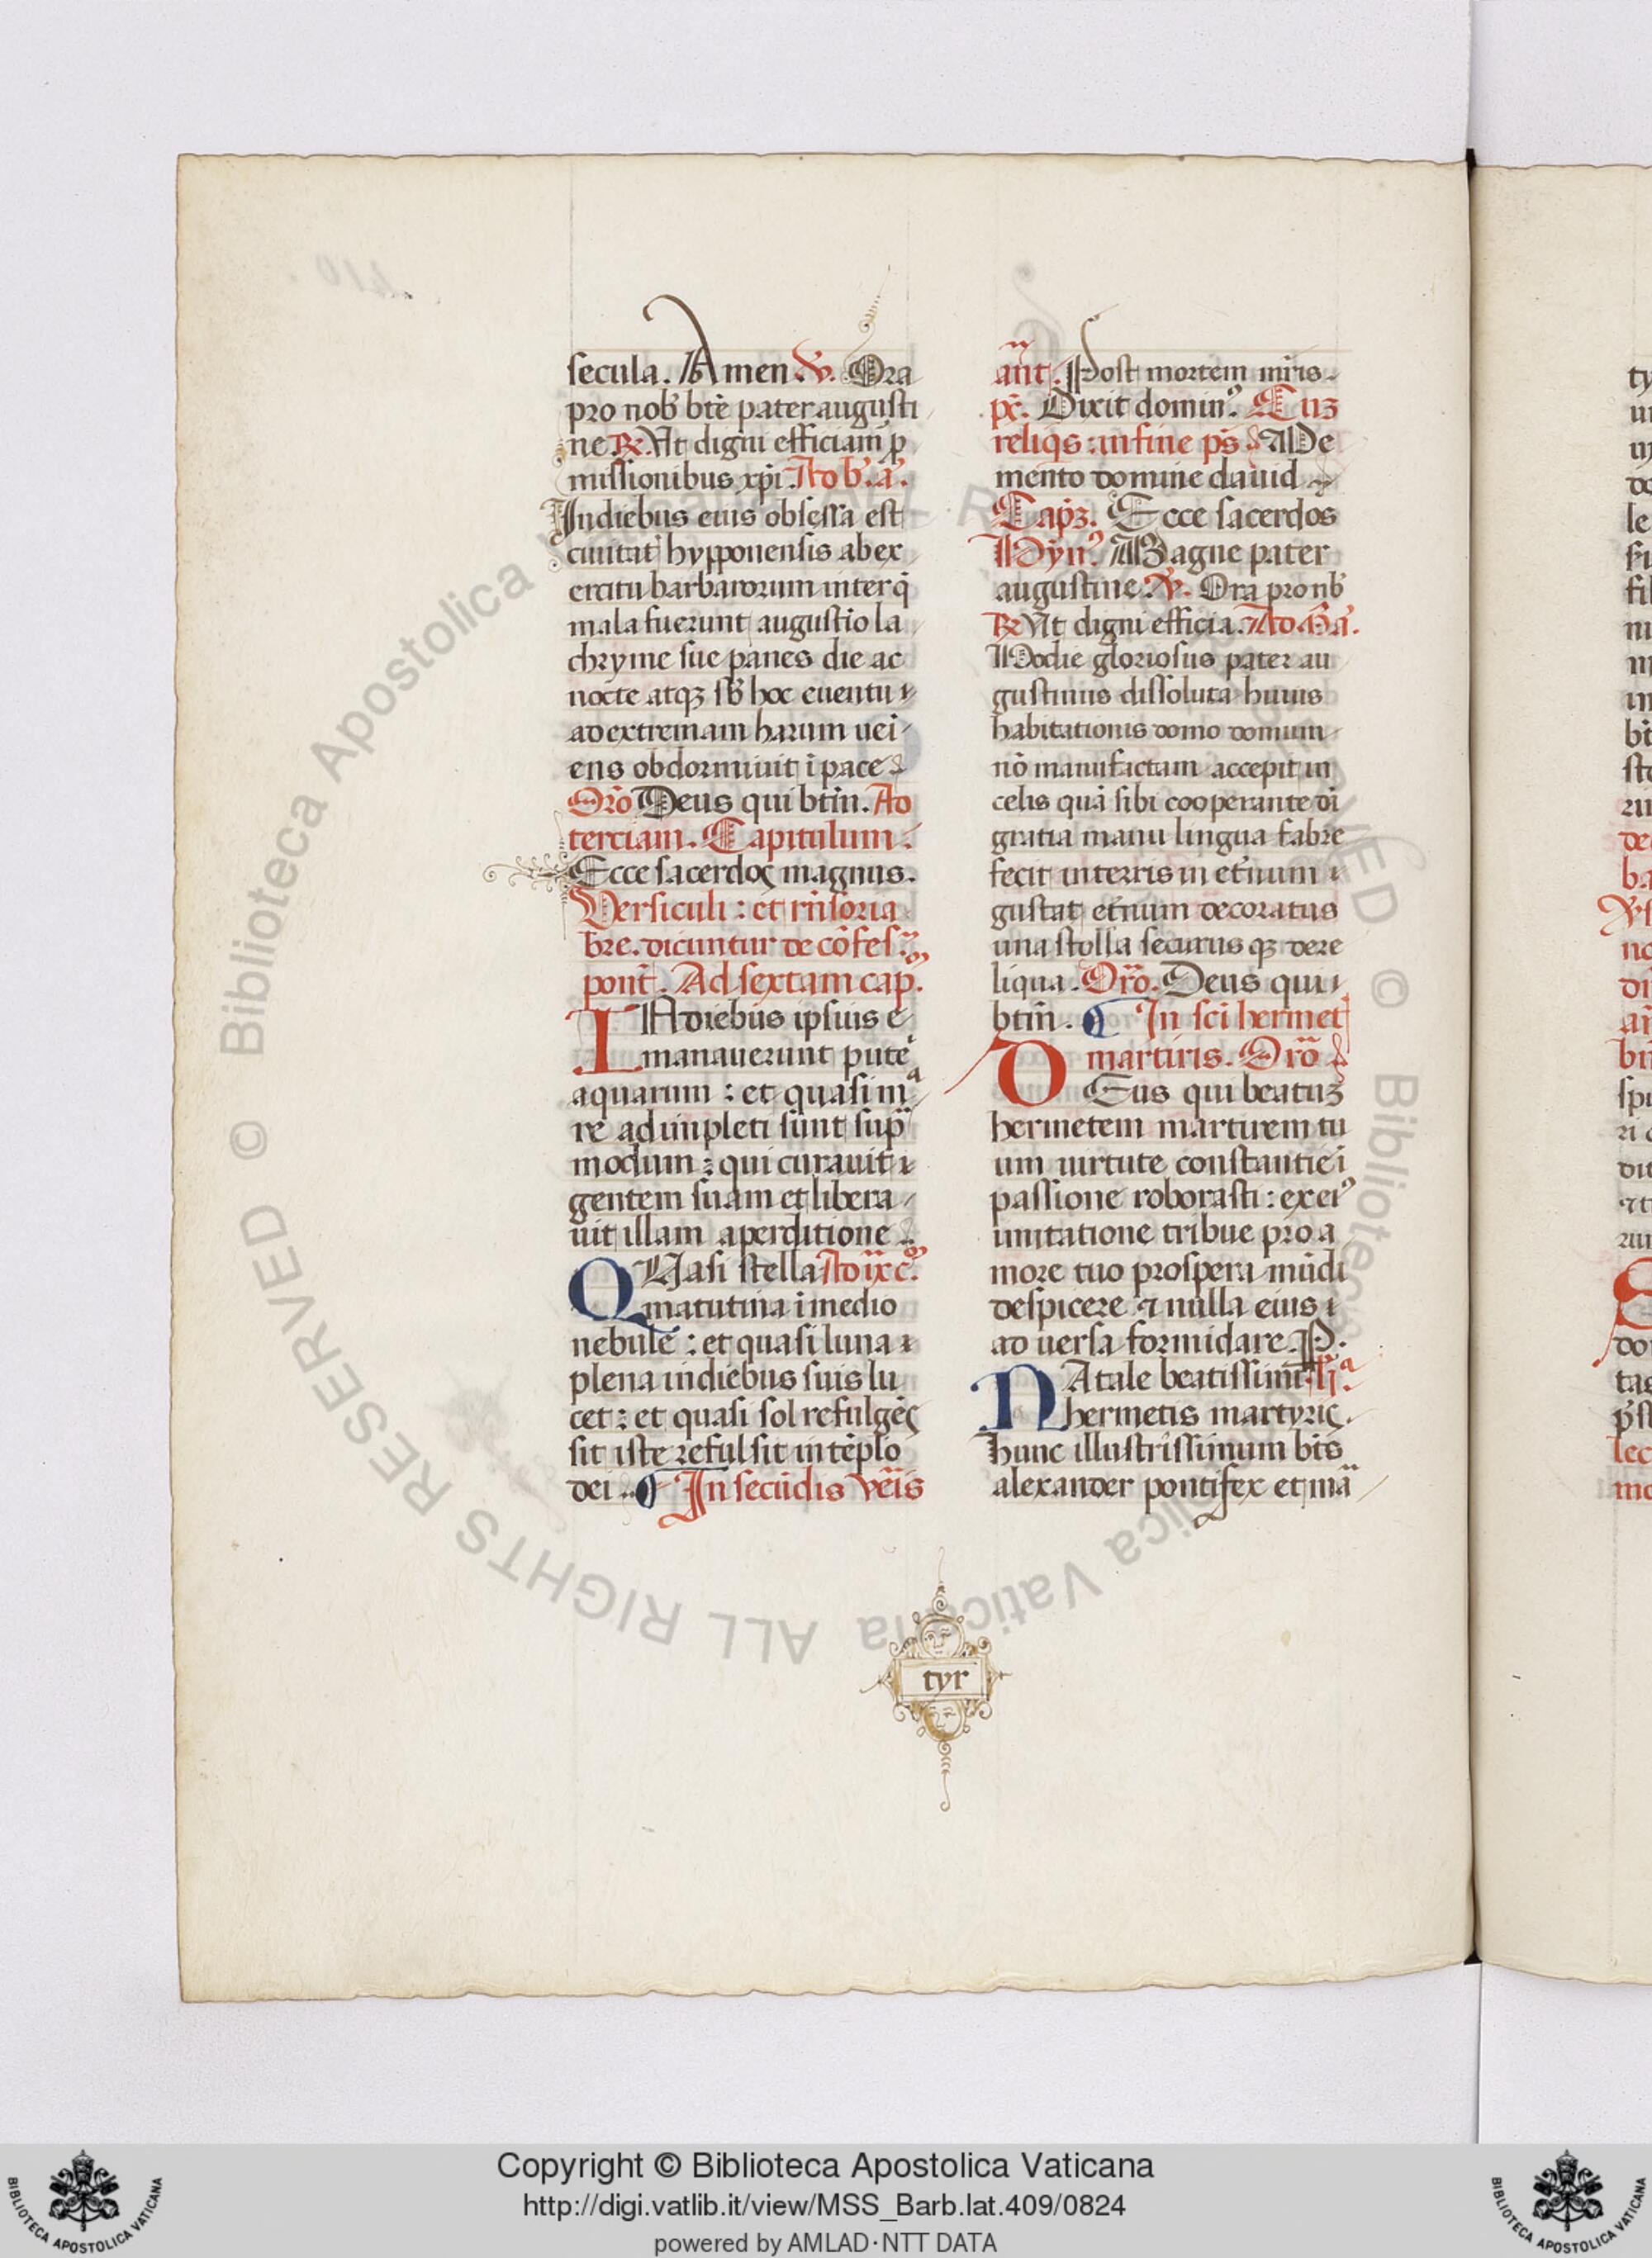 secula. Amen. ℣. Ora
pro nob btē pater augusti
ne ℟. Vt digni efficiam̄ ꝓ
missionibus xp̄i. Ad b̄. a.
In diebus eius obsessa est
ciuitas hypponensis ab ex
ercitu barbarorum inter q̄
mala fuerunt augustīo la
chryme sue panes die ac
nocte atqꝫ sb̄ hoc euentu
ad extremam harum uei
ens obdormiuit ī pace
Orō Deus qui btm̄. Ad
terciam. Capitulum.
Ecce sacerdos magnus.
Versiculi: et rn̄soria
bre. dicuntur de cōfes.
pont̄. Ad sextam cap.
IN diebus ipsius e
manauerunt pute
aquarum: et quasi ma
re adimpleti sunt sup
modum: qui curauit
gentem suam et libera
uit illam a perditione
QUasi stella Ad ixc.
matutina ī medio
nebule: et quasi luna
plena in diebus suis lu
cet: et quasi sol refulgēs
sic iste refulsit in tēplo
dei .. ¶ In secūdis vēis
ant. Post mortem mr̄is.
ps. Dixit domin9. Cuz
reliqs: in fine ps. Me
mento domine dauid
Capꝫ. Ecce sacerdos
Hyn9. Magne pater
augustine. ℣. Ora pro nb
℟ Vt digni efficia. Ad M. a.
Hodie gloriosus pater au
gustinus dissoluta huius
habitationis domo domum
nō manufactam accepit in
celis quā sibi cooperante dī
gratia manu lingua fabre
fecit in terris in et̄num
gustat et̄num decoratus
una stolla securus qꝫ de re
liqua. Orō. Deus qui
btm̄. ¶ In sci hermet
martiris. Orō
DEus qui beatuz
hermetem martirem tu
um uirtute constantie ī
passione roborasti: ex ei9
imitatione tribue pro a
more tuo prospera mūdi
despicere ⁊ nulla eius
aduersa formidare. P.
NAtale beatissimī lj.a
hermetis martyris.
hunc illustrissimum bt̄s
alexander pontifex et ma
tyr
Copyright © Biblioteca Apostolica Vaticana
http://digi.vatlib.it/view/MSS_Barb.lat.409/0824
powered by AMLAD·NTT DATA